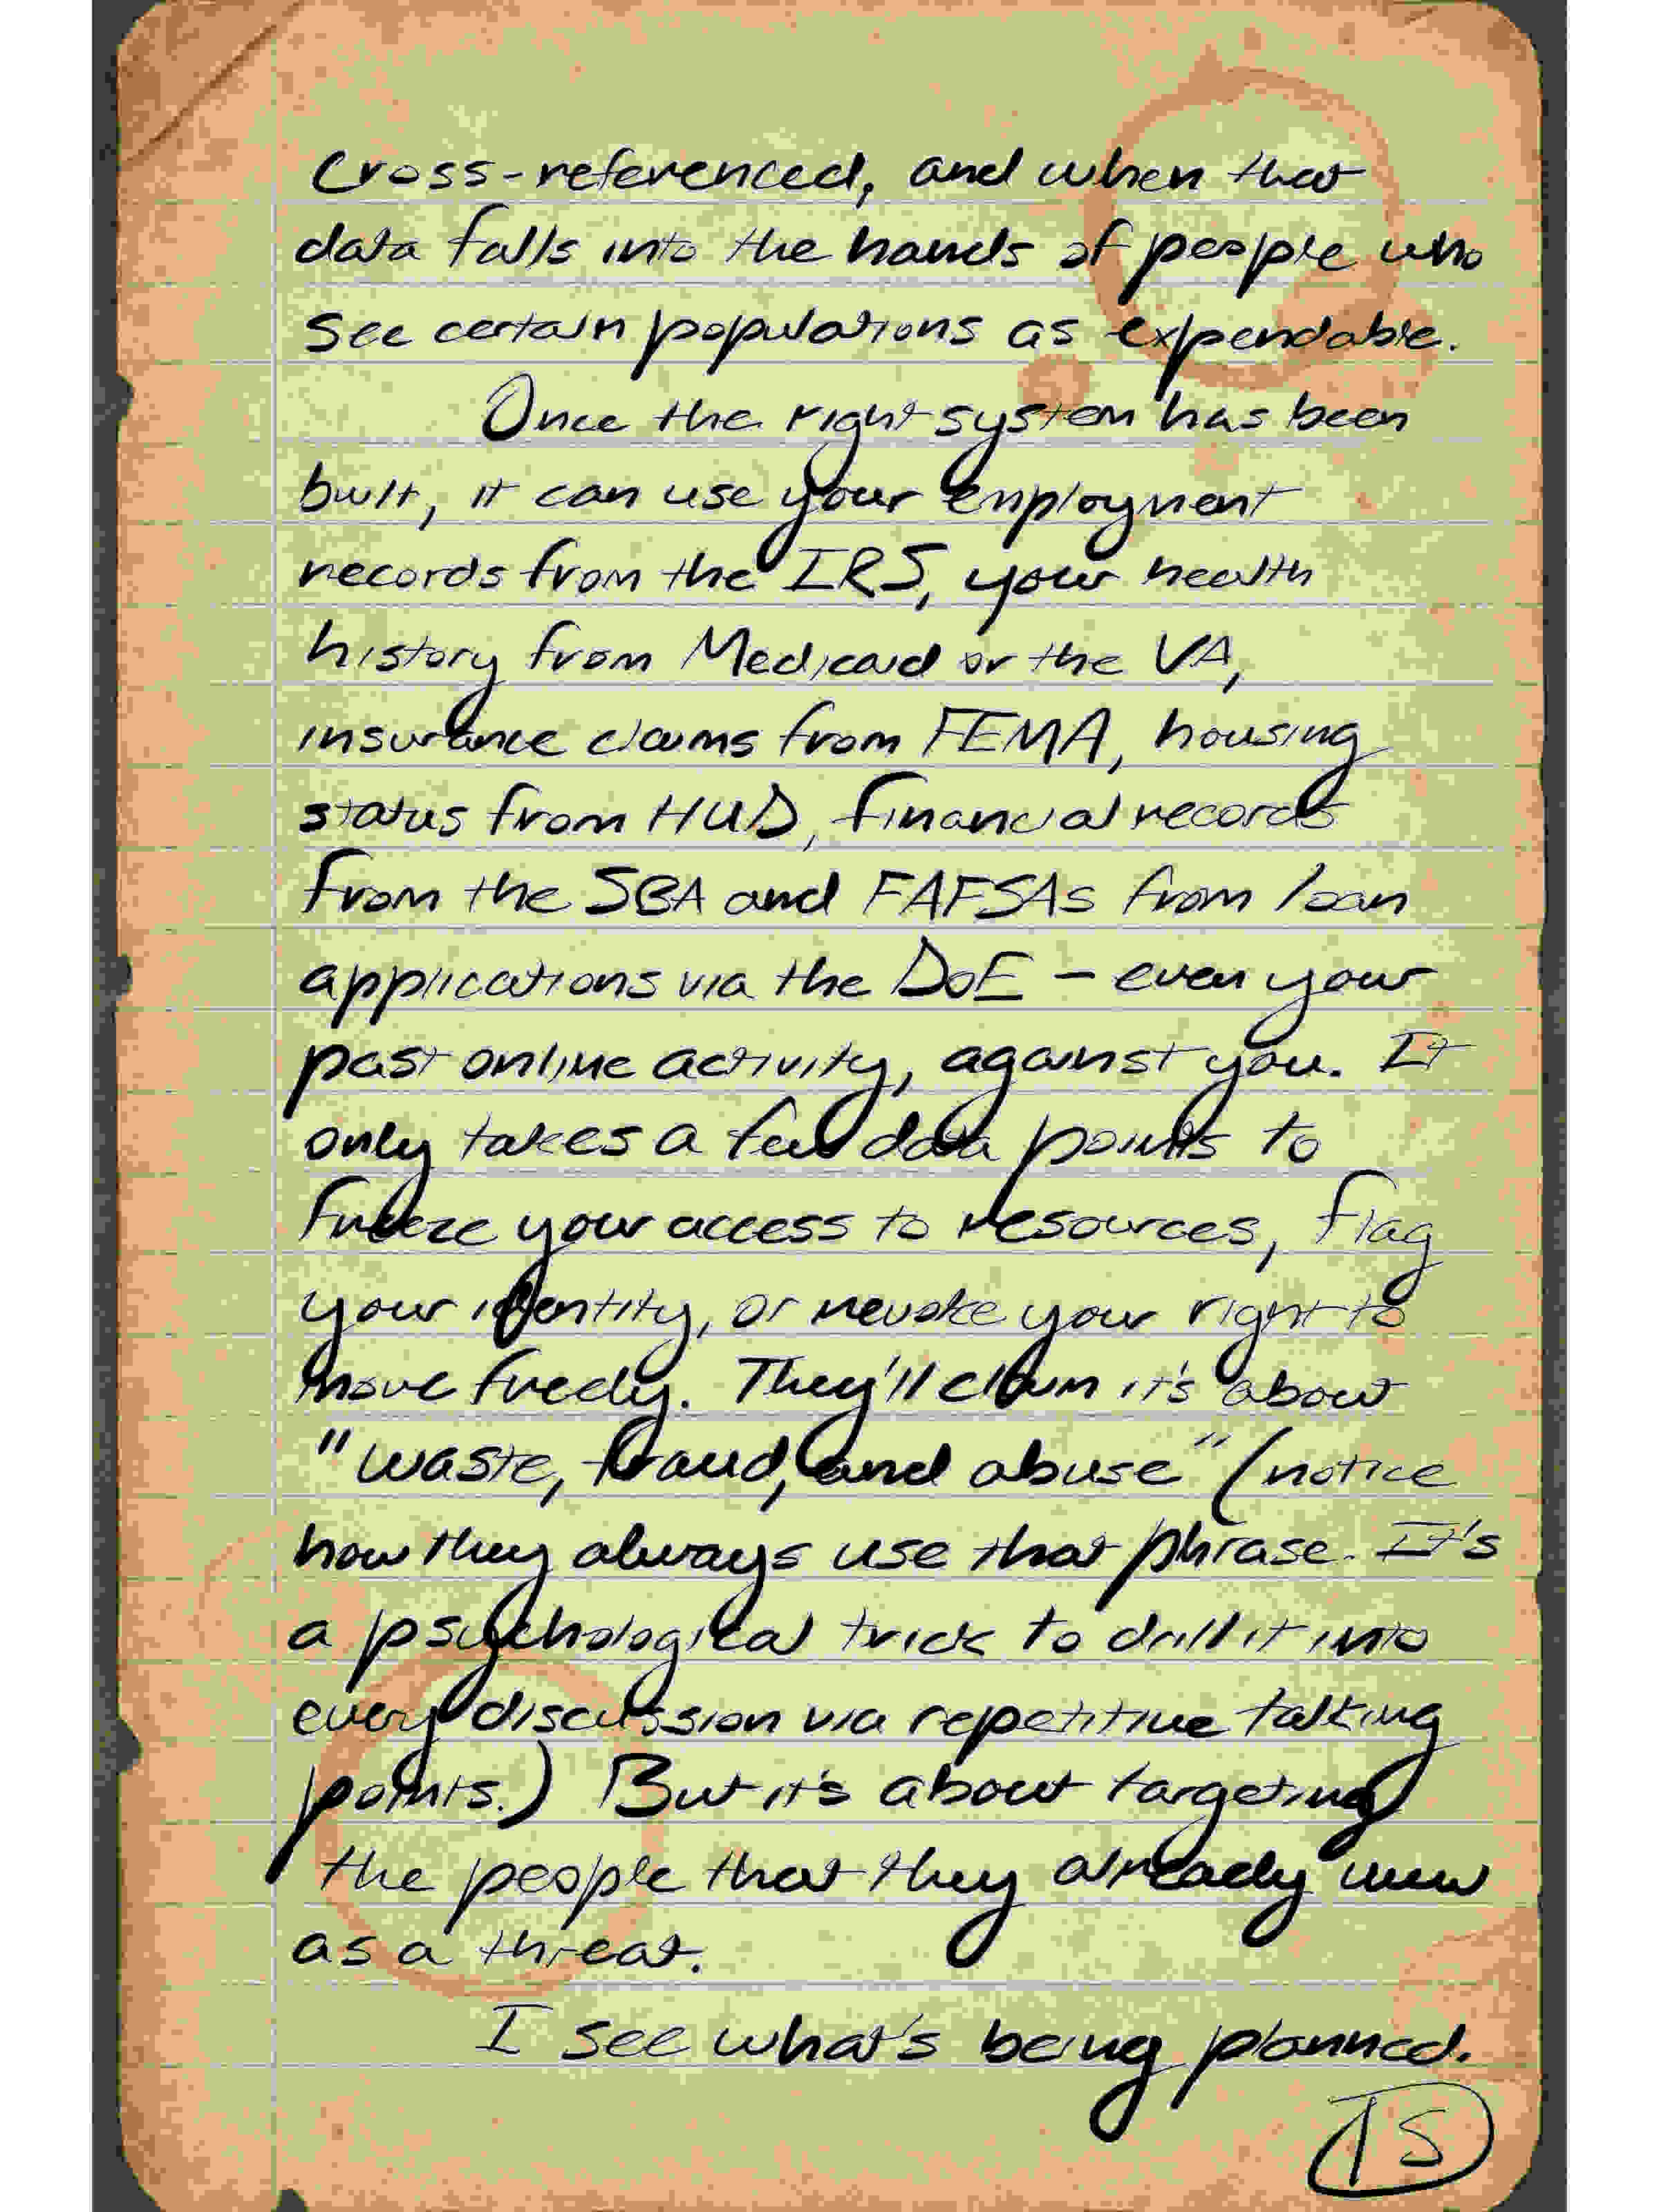 Cross-referenced, and when that
data falls into the hands of people who
see certain populations as expendable.
Once the right system has been
built, it can use your employment
records from the IRS, your health
history from Medicaid or the VA,
insurance claims from FEMA, housing
status from HUD, financial records
from the SBA and FAFSAs from loan
applications via the DoE – even your
past online activity, against you. It
only takes a few data points to
freeze your access to resources, flag
your identity, or revoke your right to
move freely. They'll claim it's about
"waste, fraud, and abuse" (notice
how they always use that phrase. It's
a psychological trick to drill it into
every discussion via repetitive talking
points.) But it's about targeting
the people that they already view
as a threat.
I see what's being planned.